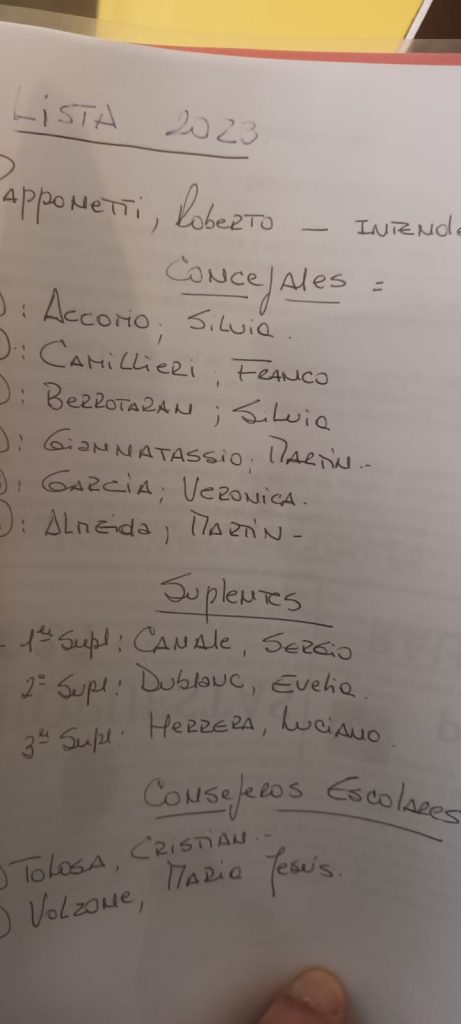 LISTA 2023
PAPPONETTI, ROBERTO — INTENDE
CONCEJALES =
): ACCOMO; SILVIA.
): CAMILLIERI; FRANCO
): BERROTARAN; SILVIA
): GIANNATASSIO; MARTÍN.-
): GARCÍA; VERONICA.
): ALMEIDA; MARTÍN -
SUPLENTES
- 1er Supl: CANALE, SERGIO
2º Supl: DUBLANC, EVELIA.
3er Supl: HERRERA, LUCIANO.
CONSEJEROS ESCOLARES
) TOLOSA, CRISTIAN.-
) VOLZONE; MARIA JESÚS.